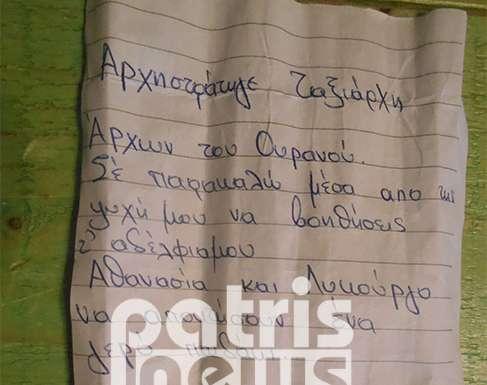 Αρχηστράτηγε Ταξιάρχη
Αρχων του Ουρανού.
Σέ παρακαλώ μέσα απο της
ψυχή μου να βοηθήσεις
αδέλφιαμου
Αθανασία και Λυκούργο
να αποκτήσουν ένα
γερό παιδάκι.
patris
news